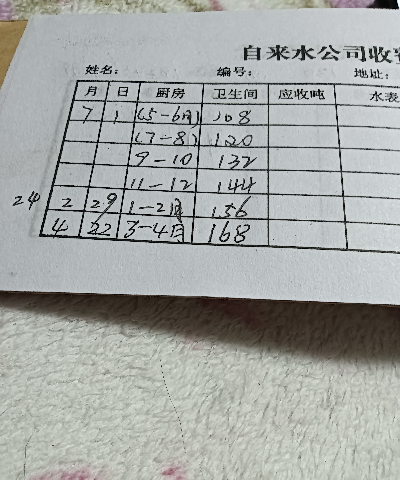 自来水公司收
姓名： 编号： 地址：
月 日 厨房 卫生间 应收吨 水表
7 1 (5-6月) 108
(7-8) 120
9-10 132
11-12 144
24 2 29 1-2月 156
4 22 3-4月 168